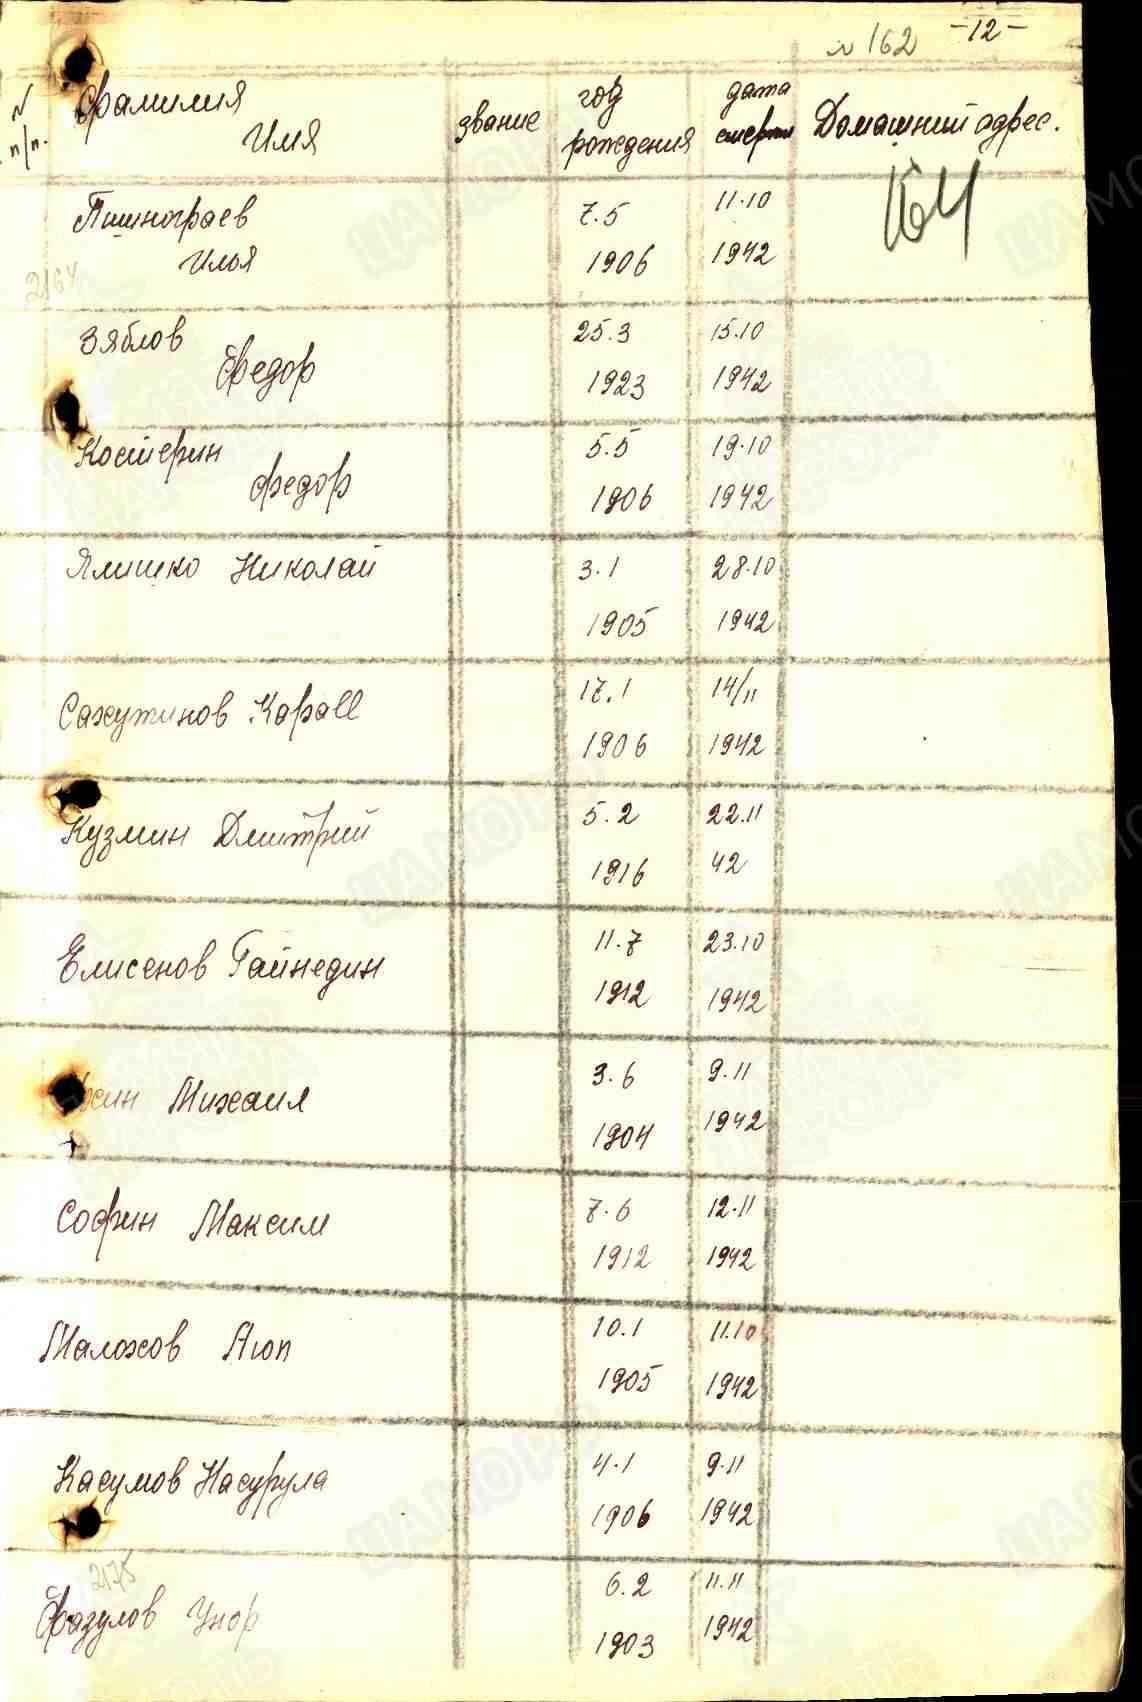 № 162 -12-
№ п/п. Фамилия Имя звание год рождения дата смерти Домашний адрес.
164
Пшнограев Илья 7.5 1906 11.10 1942
2164
Зяблов Федор 25.3 1923 15.10 1942
Костерин Федор 5.5 1906 19.10 1942
Ялишко Николай 3.1 1905 28.10 1942
Сахутинов 17.1 1906 14/11 1942
Кузмин Дмитрий 5.2 1916 22.11 42
Елисенов Гайнедин 11.7 1912 23.10 1942
Михаил 3.6 1904 9.11 1942
Софин Максим 7.6 1912 12.11 1942
Малохов Аюп 10.1 1905 11.10 1942
Касумов Насурула 4.1 1906 9.11 1942
2175
Фазулов Унор 6.2 1903 11.11 1942